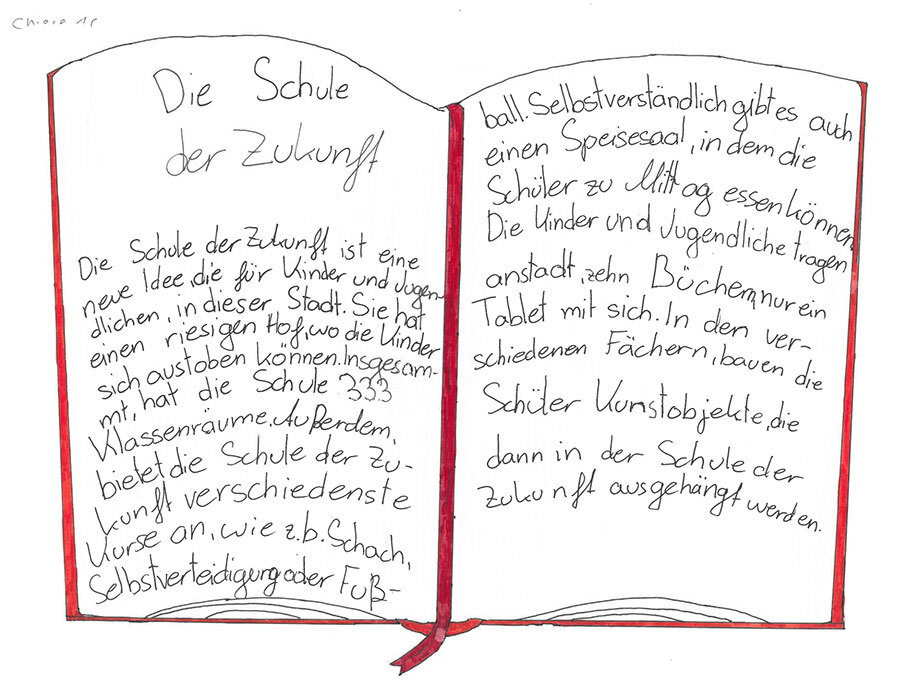 Chiara 1c
Die Schule
der Zukunft
Die Schule der Zukunft ist eine
neue Idee, die für Kinder und Jugen-
dlichen, in dieser Stadt. Sie hat
einen riesigen Hof, wo die Kinder
sich austoben können. Insgesam-
mt, hat die Schule 333
Klassenräume. Außerdem,
bietet die Schule der Zu-
kunft verschiedenste
Kurse an, wie z.b. Schach,
Selbstverteidigung oder Fuß-
ball. Selbstverständlich gibt es auch
einen Speisesaal, in dem die
Schüler zu Mittag essen können.
Die Kinder und Jugendliche tragen
anstadt, zehn Büchern, nur ein
Tablet mit sich. In den ver-
schiedenen Fächern, bauen die
Schüler Kunstobjekte, die
dann in der Schule der
Zukunft ausgehängt werden.